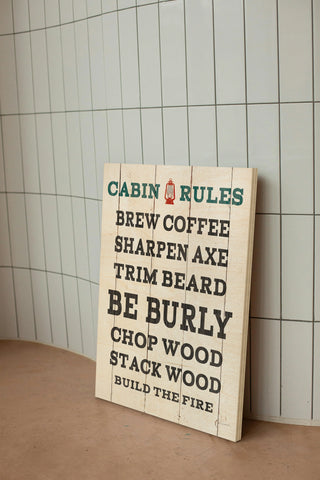 CABIN RULES
BREW COFFEE
SHARPEN AXE
TRIM BEARD
BE BURLY
CHOP WOOD
STACK WOOD
BUILD THE FIRE